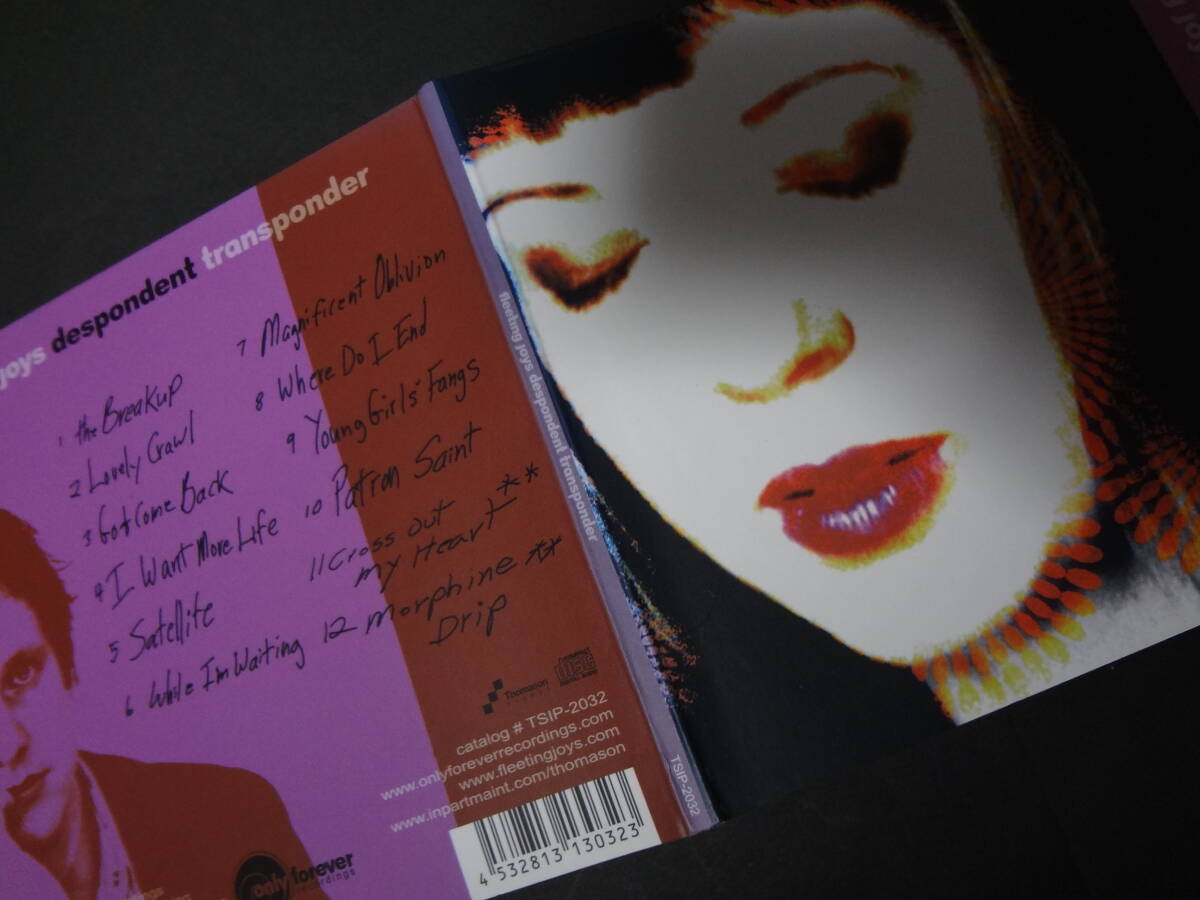 joys despondent transponder
1 the Breakup
2 Lovely Crawl
3 Go + Come Back
4 I Want More Life
5 Satellite
6 While I'm Waiting
7 Magnificent Oblivion
8 Where Do I End
9 Young Girls' Fangs
10 Patron Saint
11 Cross out
my Heart **
12 Morphine **
Drip
Thomason
catalog # TSIP-2032
www.onlyforeverrecordings.com
www.fleetingjoys.com
www.inpartmaint.com/thomason
4 532813 130323
only forever
recordings
fleeting joys despondent transponder
TSIP-2032